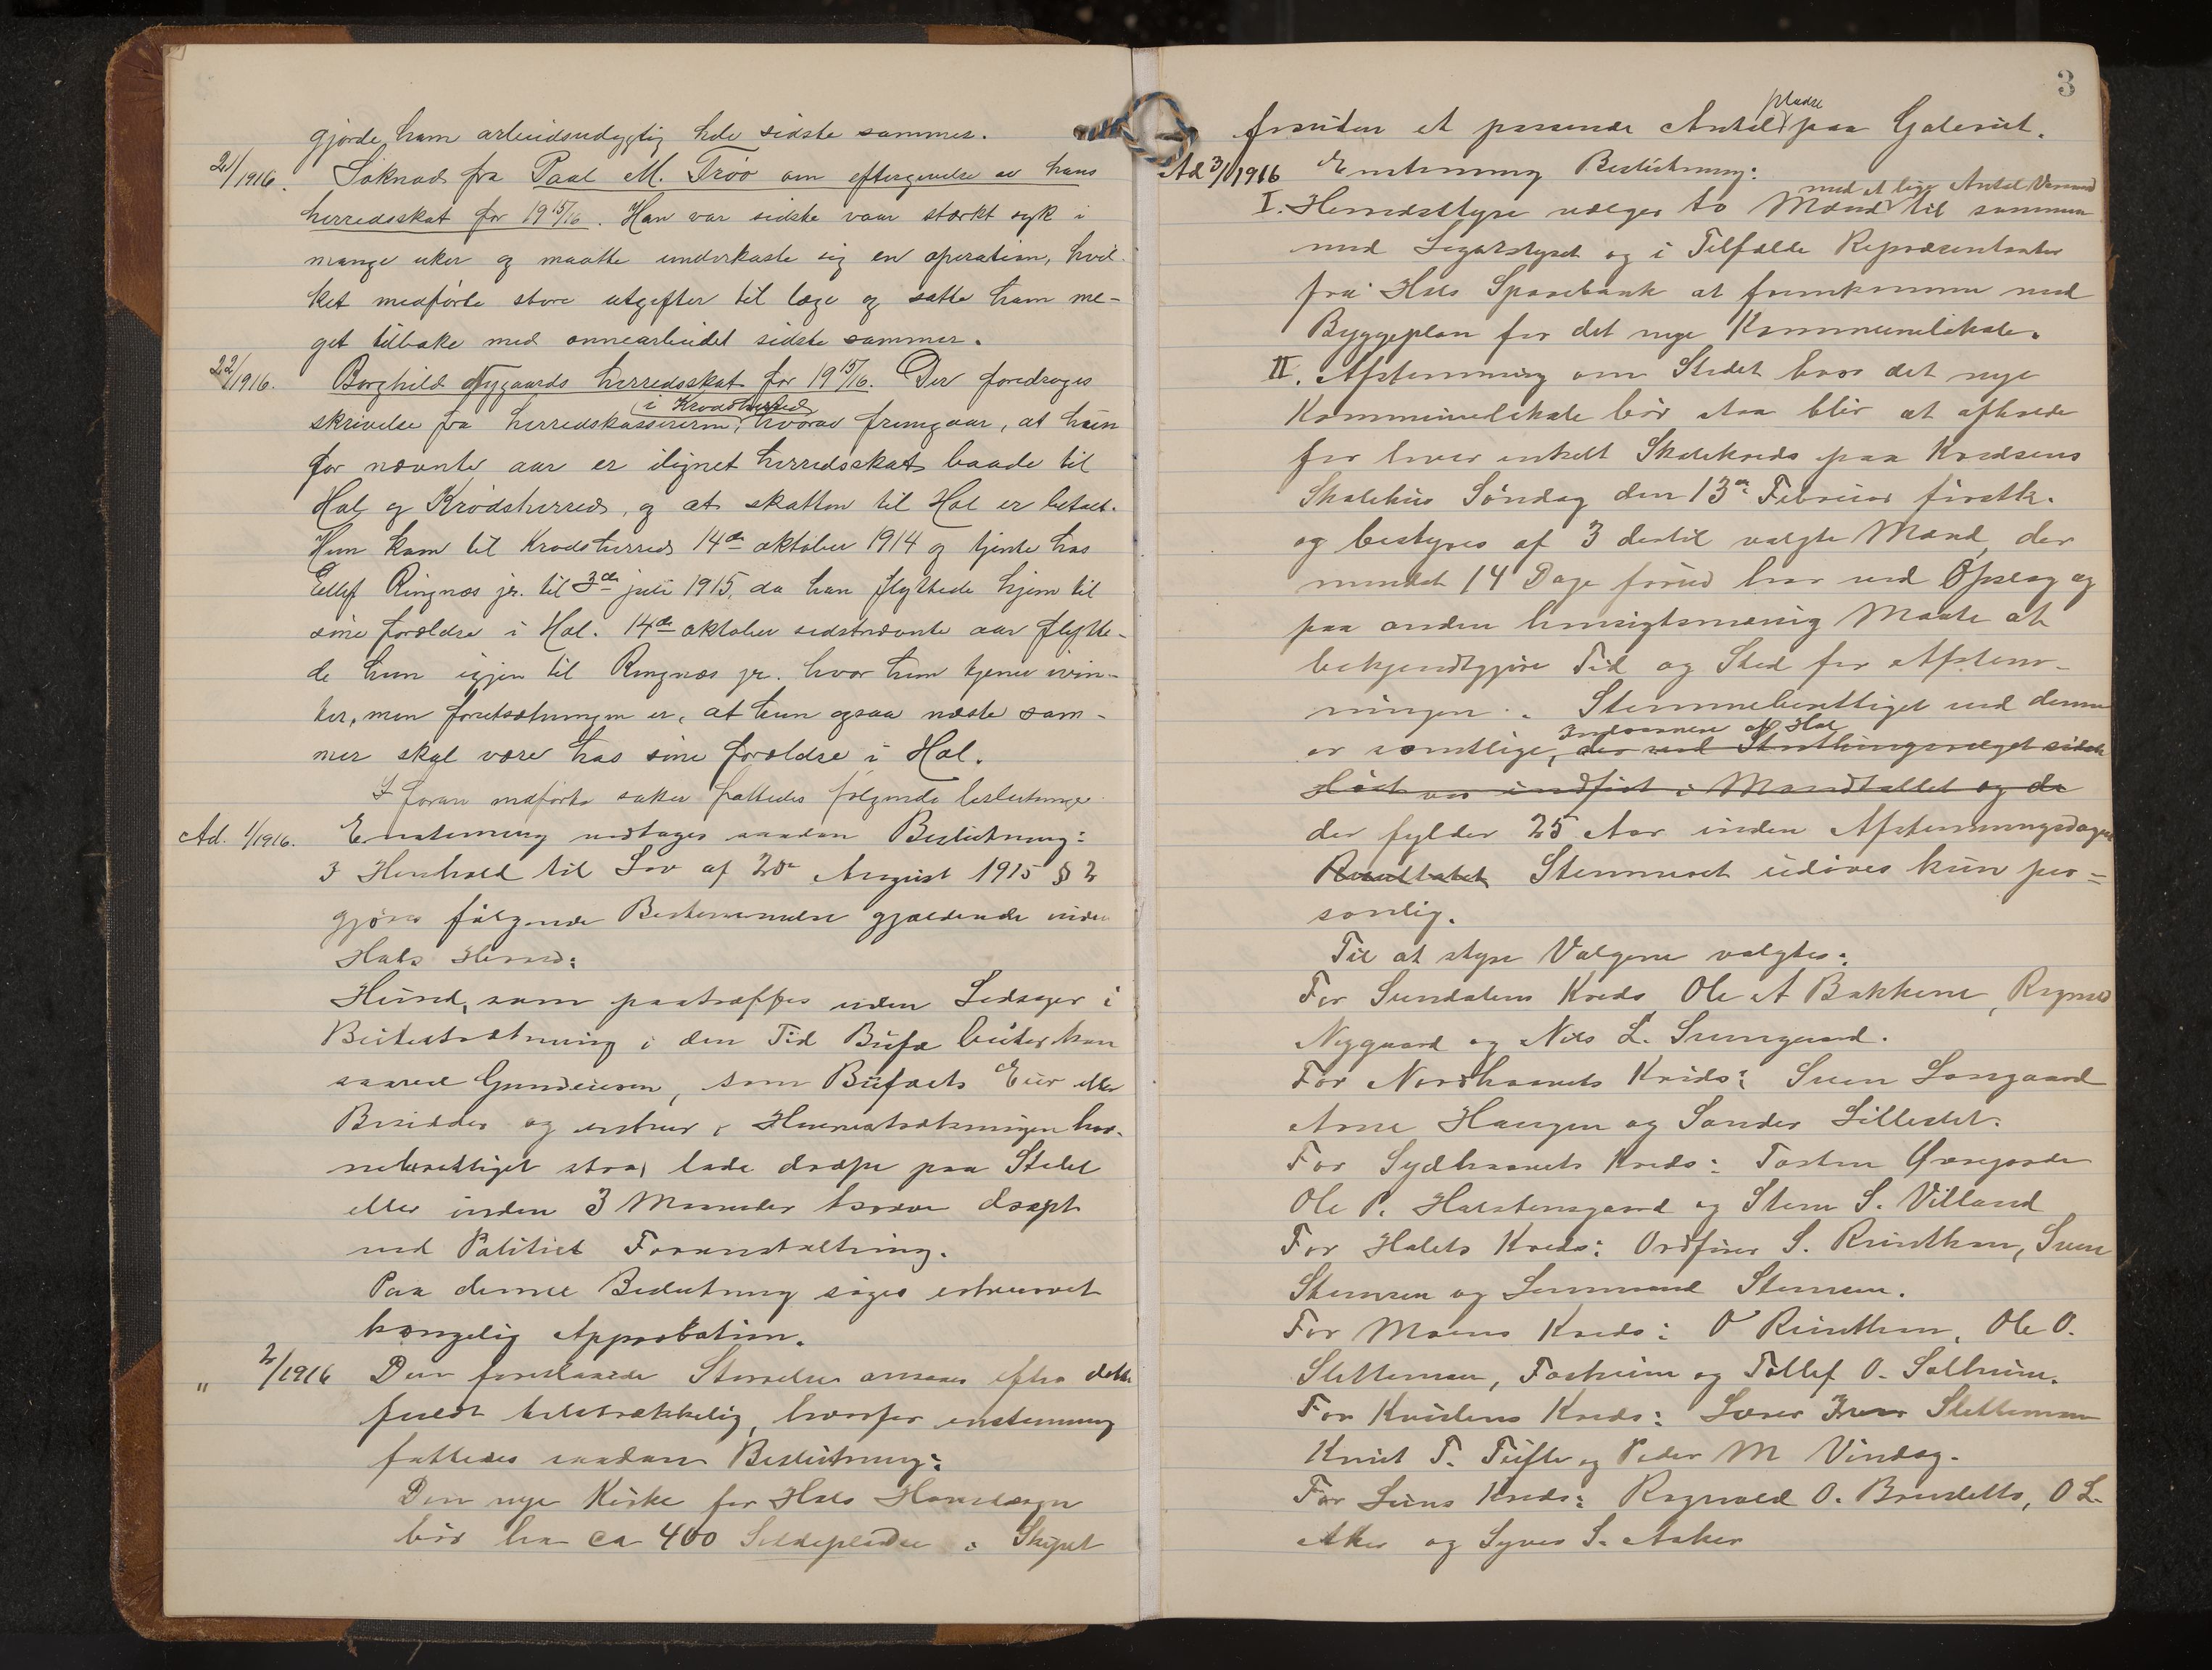 gjorde ham arbeidsudygtig hele sidste sommer.
21/1916. Søknad fra Paal M. Trøo om eftergivelse av hans
herredsskat for 1915/16. Han var sidste vaar stærkt syk i
mange uker og maatte underkaste sig en operation, hvil-
ket medførte store utgifter til læge og satte ham me-
get tilbake med onnearbeidet sidste sommer.
22/1916. Borghild Nygaards herredsskat for 1915/16. Der foredroges
i Krødsherred
skrivelse fra herredskassereren, hvorav fremgaar, at hun
for nævnte aar er ilignet herredsskat baade til
Hol og Krødsherred, og at skatten til Hol er betalt.
Hun kom til Krødsherred 14de oktober 1914 og tjente hos
Ellef Ringnæs jr. til 3de juli 1915, da hun flyttede hjem til
sine forældre i Hol. 14de oktober sidstnævnte aar flytte-
de hun igjen til Ringnæs jr. hvor hun tjener ivin-
ter, men forutsætningen er, at hun ogsaa næste som-
mer skal være hos sine forældre i Hol.
I foran anførte saker fattedes følgende beslutninger
Ad. 1/1916. Enstemmig vedtages saadan Beslutning:
I Henhold til Lov af 20de August 1915 § 2
gjøres følgende Bestemmelse gjældende inden
Hols Herred:
Hund, som paatræffes uden Ledsager i
Beitestrækning i den Tid Bufæ beiter kan
saavel Grundeieren, som Bufæets Eier eller
Besidder og enhver i Havnestrækningen hav-
neberettiget strax lade dræpe paa Stedet
eller inden 3 Maaneder kræve dræpt
ved Politiets Foranstaltning.
Paa denne Beslutning søges erhvervet
kongelig Approbation.
" 2/1916 Den foreslaaede Størrelse ansees efter dette
fuldt tilstrækkelig, hvorfor enstemmig
fattedes saadan Beslutning:
Den nye Kirke for Hols Hovedsogn
bør ha ca 400 Siddepladse i Skipet
3
pladse
foruden et passende Antal paa Galeriet.
Ad 3/1916 Enstemmig Beslutning:
med et lige Antal Varamænd
I. Herredsstyre vælger to Mænd til sammen
med Legatstyret og i Tilfælde Repræsentanter
fra Hols Sparebank at fremkomme med
Byggeplan for det nye Kommunelokale.
II. Afstemning om Stedet hvor det nye
Kommunelokale bør staa blir at afholde
for hver enkelt Skolekreds paa Kredsens
Skolehus Søndag den 13de Februar førstk.
og bestyres af 3 dertil valgte Mænd, der
mindst 14 Dage forud har ved Opslag og
paa anden hensigtsmæssig Maate at
bekjendtgjøre Tid og Sted for Afstem-
ningen. Stemmeberettiget ved denne
Indvaanere af Hol
er samtlige, der ved Storthingsvalget sidste
Høst var indført i Mandtallet og de
der fylder 25 Aar inden Afstemningsdagen
Resultatet Stemmeret udøves kun per-
sonlig.
Til at styre Valgene valgtes:
For Sundalens Kreds, Ole A Bakkene, Ragnvald
Nygaard og Nils L. Sungaard.
For Nordhaavets Kreds: Svein Larsgaard
Arne Haugen og Sander Lillestet.
For Sydhaavets Kreds: Tosten Øvregarde
Ole P. Halstensgaard og Sten S. Villand
For Holets Kreds: Ordfører S. Reinthon, Svein
Stensen og Lensmand Stensen.
For Moens Kreds: O Reinthon, Ole O.
Slettemoen, Fosheim og Tollef O. Solheim.
For Kvislens Kreds: Lærer Iver Slettemoen
Knut T. Tufte og Peder M Vindeg.
For Liens Kreds: Ragnvald O. Brusletto, O L.
Aker og Syver S. Aaker